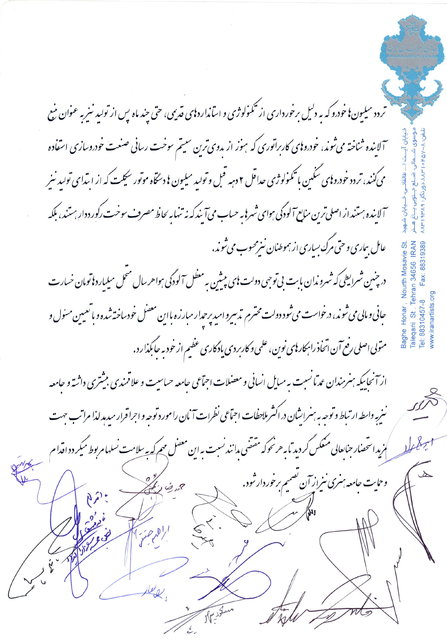 تردد میلیون‌ها خودرو که به دلیل برخورداری از تکنولوژی و استانداردهای قدیمی، حتی چند ماه پس از تولید نیز به عنوان منبع
آلاینده شناخته می‌شوند، خودروهای کاربراتوری که هنوز از بدوی‌ترین سیستم سوخت رسانی صنعت خودروسازی استفاده
می‌کنند، تردد خودروهای سنگین با تکنولوژی حداقل ۲ دهه قبل و تولید میلیون‌ها دستگاه موتور سیکلت که از ابتدای تولید نیز
آلاینده هستند از اصلی‌ترین منابع آلودگی هوای شهرها به حساب می‌آیند که نه تنها به لحاظ مصرف سوخت رکورددار هستند، بلکه
عامل بیماری و حتی مرگ بسیاری از هموطنان نیز محسوب می‌شوند.
در چنین شرایطی که شهروندان بابت بی‌توجهی دولت‌های پیشین به معضل آلودگی هوا هر سال متحمل میلیاردها تومان خسارت
جانی و مالی می‌شوند، درخواست می‌شود دولت محترم تدبیر و امید پرچمدار مبارزه با این معضل خودساخته شده و با تعیین مسئول و
متولی اصلی رفع آن اتخاذ راهکارهای نوین، علمی و کاربردی یادگاری عظیم از خود به جا بگذارد.
از آنجاییکه هنرمندان عمدتا نسبت به مسایل انسانی و معضلات اجتماعی جامعه حساسیت و علاقمندی بیشتری داشته و جامعه
نیز به واسطه ارتباط و توجه به هنر ایشان در اکثر ملاحظات اجتماعی نظرات آنان را مورد توجه و اجرا قرار میدهد لذا مراتب جهت
مزید استحضار جنابعالی منعکس گردید تا به هر نحو که مقتضی میدانند نسبت به این معضل مهم که به سلامت نسلها مربوط میگردد اقدام
و حمایت جامعه هنری نیز از آن تصمیم برخوردار شود.
Baghe Honar, Nourth Mosavie St.
Taleqani St. Tehran 34656 IRAN
Tel: 88310457-8 Fax: 88319389
www.iranartists.org